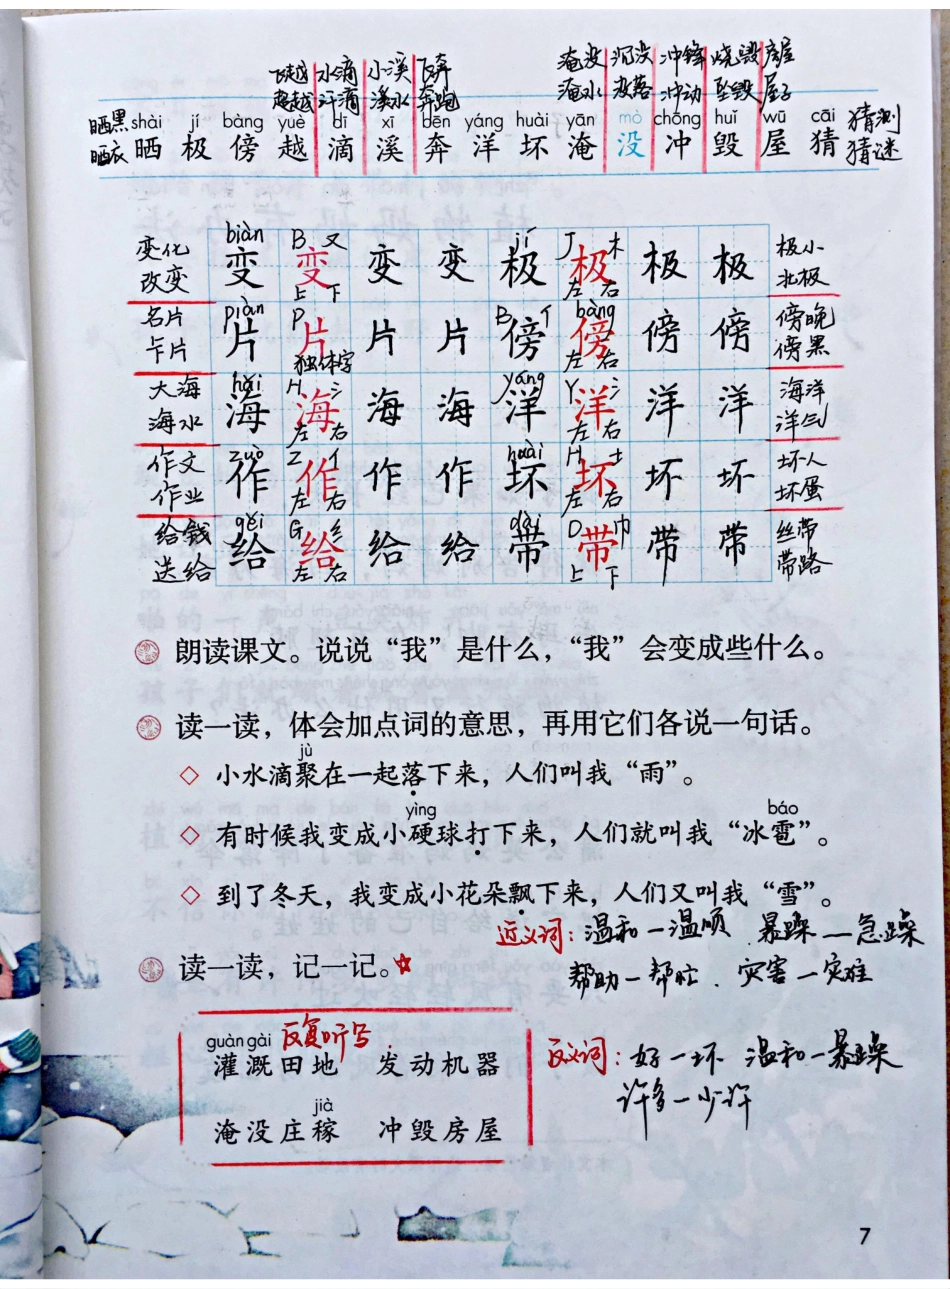 飞越 水滴 小溪 飞奔 淹没 沉没 冲锋 烧毁 房屋
超越 汗滴 溪水 奔跑 淹水 没落 冲动 坠毁 屋子
晒黑 shài jí bàng yuè dī xī bēn yáng huài yān mò chōng huǐ wū cāi 猜测
晒衣 晒 极 傍 越 滴 溪 奔 洋 坏 淹 没 冲 毁 屋 猜 猜谜
变化 biàn B 又 jí J 木 极小
改变 变 变 变 变 极 极 极 极 北极
上 下 左 右
名片 piàn P B 亻 bàng 傍晚
卡片 片 片 片 片 傍 傍 傍 傍 傍黑
独体字 左 右
大海 hǎi H 氵 yáng Y 氵 海洋
海水 海 海 海 海 洋 洋 洋 洋 洋气
左 右 左 右
作文 zuò Z 亻 huài H 土 坏人
作业 作 作 作 作 坏 坏 坏 坏 坏蛋
左 右 左 右
给钱 gěi G 纟 dài D 巾 丝带
送给 给 给 给 给 带 带 带 带 带路
左 右 上 下
朗读课文。说说“我”是什么，“我”会变成些什么。
读一读，体会加点词的意思，再用它们各说一句话。
jù
◇ 小水滴聚在一起落下来，人们叫我“雨”。
yìng báo
◇ 有时候我变成小硬球打下来，人们就叫我“冰雹”。
◇ 到了冬天，我变成小花朵飘下来，人们又叫我“雪”。
近义词：温和—温顺 暴躁—急躁
读一读，记一记。☆
帮助—帮忙 灾害—灾难
guàn gài 反复听写
灌溉田地 发动机器
反义词：好—坏 温和—暴躁
许多—少许
jià
淹没庄稼 冲毁房屋
7